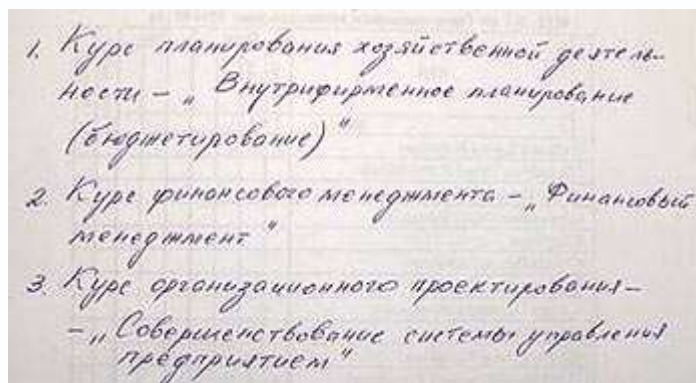 1. Курс планирования хозяйственной деятель-
ности – „ Внутрифирменное планирование
(бюджетирование)"
2. Курс финансового менеджмента – „Финансовый
менеджмент"
3. Курс организационного проектирования –
– „Совершенствование системы управления
предприятием"